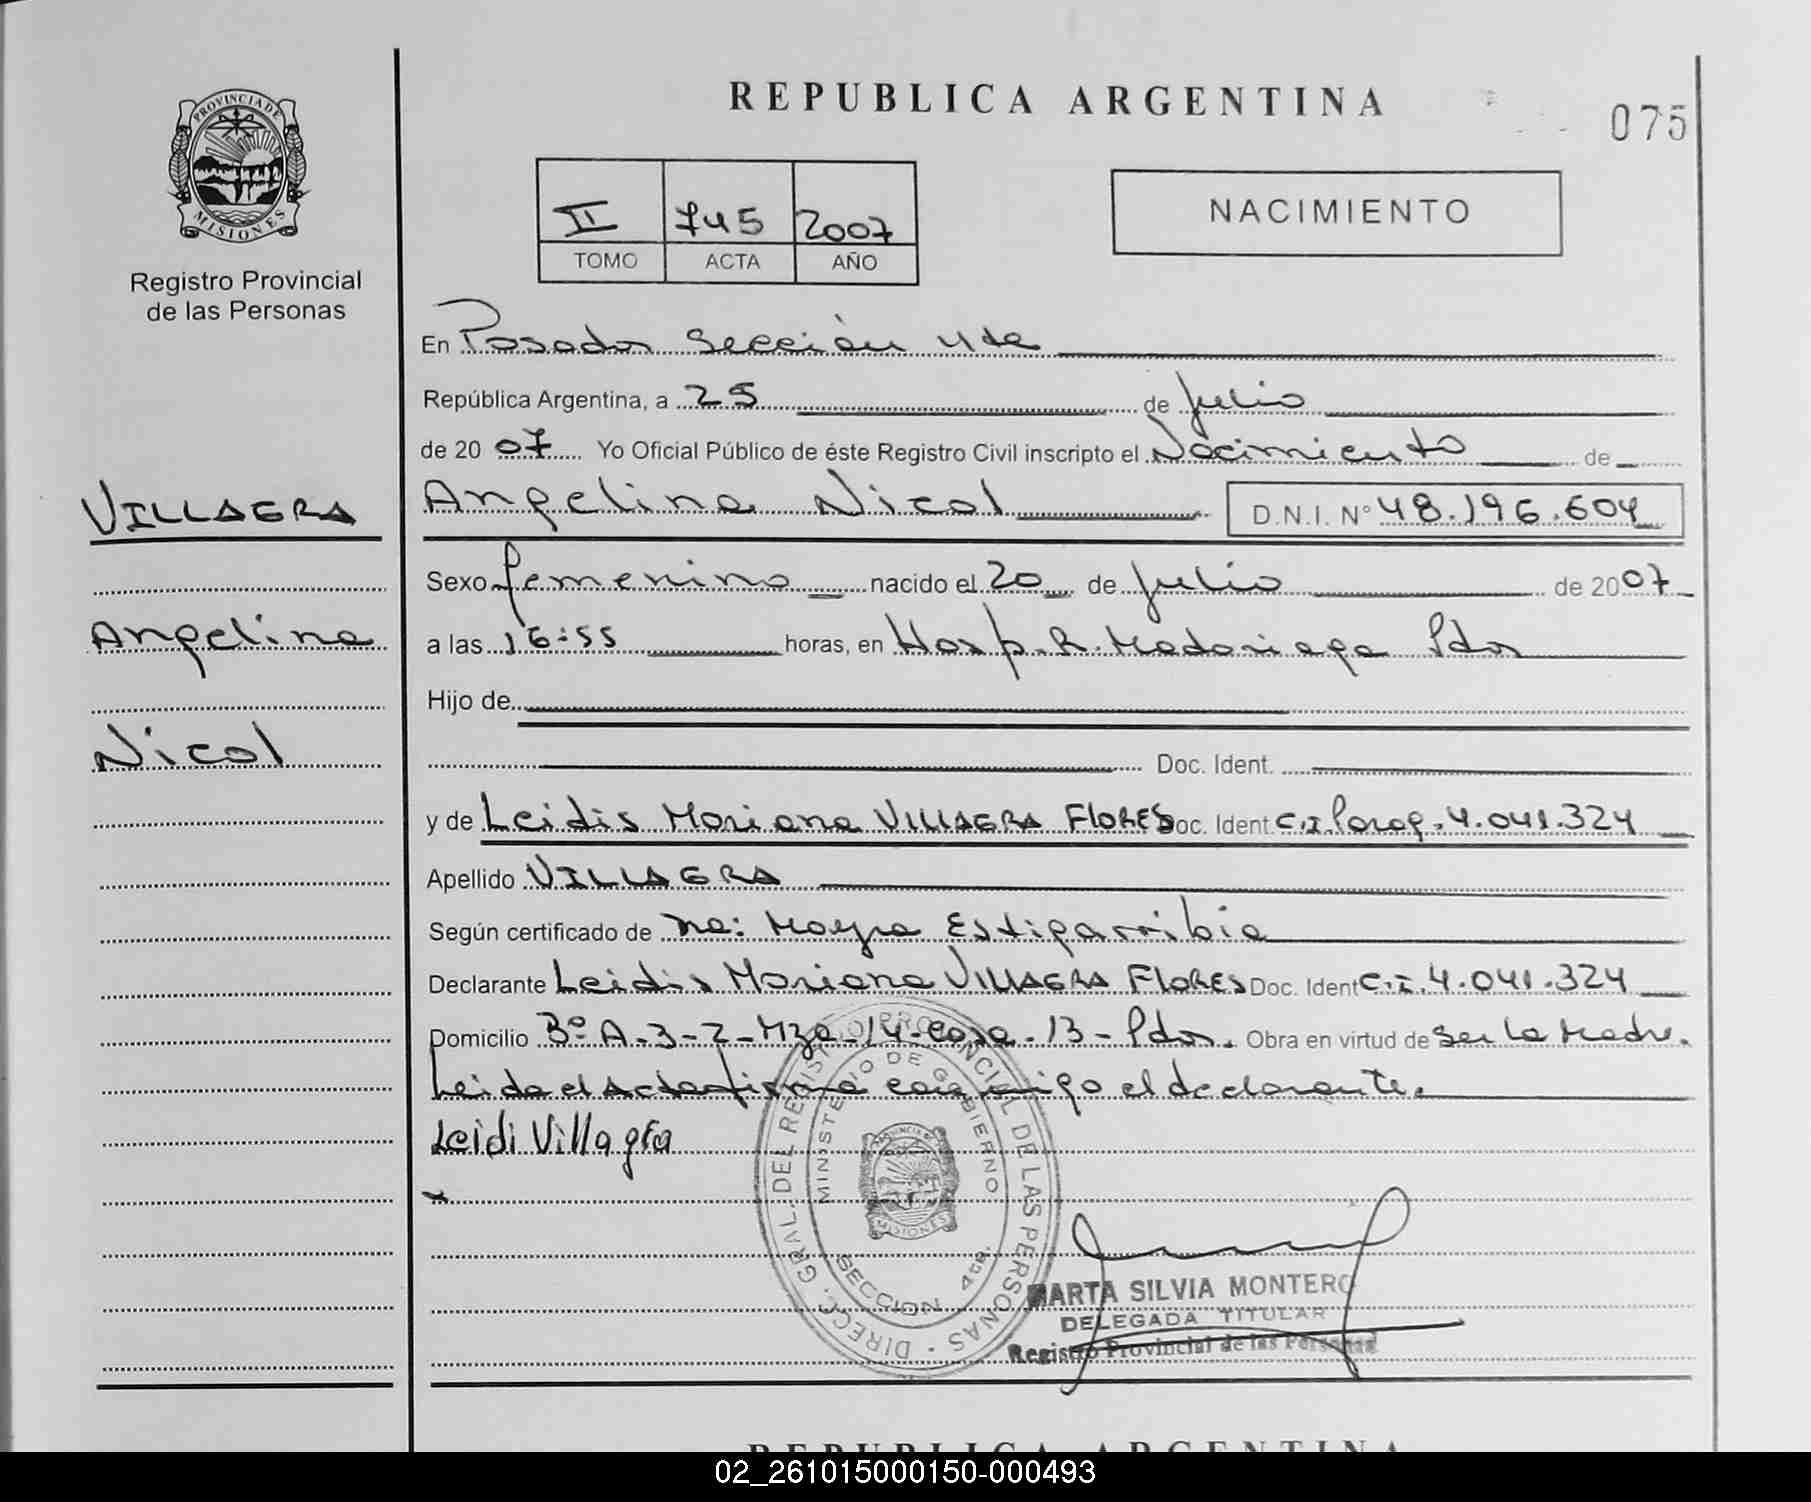 REPUBLICA ARGENTINA
075
PROVINCIA DE
MISIONES
Registro Provincial
de las Personas
II 745 2007
TOMO ACTA AÑO
NACIMIENTO
En Posadas Sección 4ta
República Argentina, a 25 de Julio
de 2007 Yo Oficial Público de éste Registro Civil inscripto el Nacimiento de
VILLAGRA
Angelina Nicol D.N.I. N° 48.196.604
Sexo femenino nacido el 20 de Julio de 2007
Angelina
a las 16:55 horas, en Hosp. R. Madariaga Pdas
Hijo de
Nicol
Doc. Ident.
y de Leidis Mariana VILLAGRA FLORES Doc. Ident C.I. Parag. 4.041.324
Apellido VILLAGRA
Según certificado de Mayra Estigarribia
Declarante Leidis Mariana VILLAGRA FLORES Doc. Ident C.I. 4.041.324
Domicilio Bº A-3-2-Mza-14-casa-13-Pdas. Obra en virtud de ser la Madre.
Leida el Acta firma conmigo el declarante.
Leidi Villagra
DIRECC. GRAL. DEL REGISTRO PROVINCIAL DE LAS PERSONAS
MINISTERIO DE GOBIERNO
PROVINCIA DE
MISIONES
SECCION 4ta.
MARTA SILVIA MONTERO
DELEGADA TITULAR
Registro Provincial de las Personas
REPUBLICA ARGENTINA
02_261015000150-000493